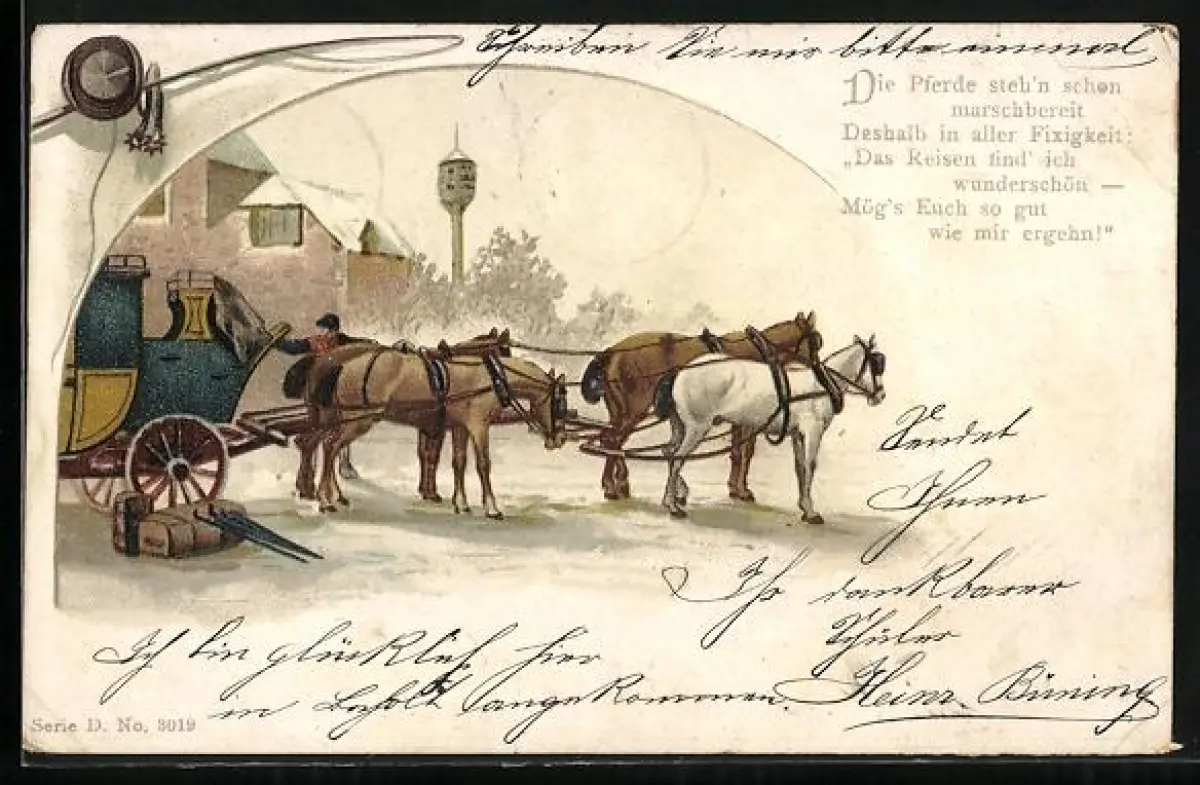 Schreiben Sie mir bitte einmal
Die Pferde steh'n schon
marschbereit
Deshalb in aller Fixigkeit:
„Das Reisen find' ich
wunderschön —
Mög's Euch so gut
wie mir ergehn!"
Sendet
Ihnen
Ihr dankbarer
Schüler
Heinz Büning
Ich bin glücklich hier
in angekommen.
Serie D. No. 3019